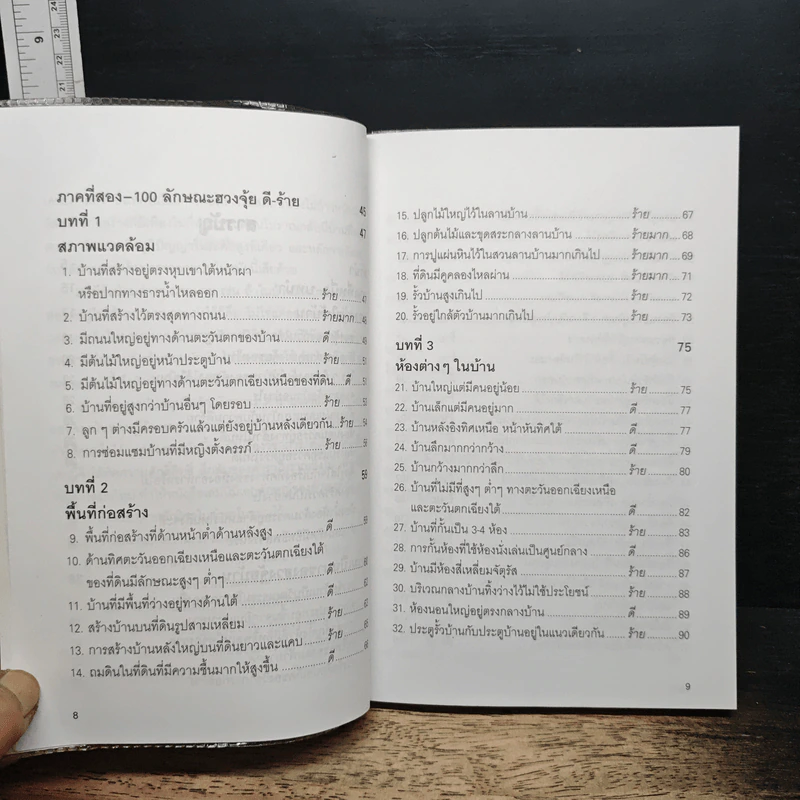 9
24
23
22
21
ภาคที่สอง–100 ลักษณะฮวงจุ้ย ดี-ร้าย 45
บทที่ 1 47
สภาพแวดล้อม
1. บ้านที่สร้างอยู่ตรงหุบเขาใต้หน้าผา
หรือปากทางธารน้ำไหลออก ร้าย 47
2. บ้านที่สร้างไว้ตรงสุดทางถนน ร้ายมาก
3. มีถนนใหญ่อยู่ทางด้านตะวันตกของบ้าน ดี
4. มีต้นไม้ใหญ่อยู่หน้าประตูบ้าน ร้าย
5. มีต้นไม้ใหญ่อยู่ทางด้านตะวันตกเฉียงเหนือของที่ดิน ดี
6. บ้านที่อยู่สูงกว่าบ้านอื่นๆ โดยรอบ ร้าย
7. ลูก ๆ ต่างมีครอบครัวแล้วแต่ยังอยู่บ้านหลังเดียวกัน ร้าย
8. การซ่อมแซมบ้านที่มีหญิงตั้งครรภ์ ร้าย
บทที่ 2 59
พื้นที่ก่อสร้าง
9. พื้นที่ก่อสร้างที่ด้านหน้าต่ำด้านหลังสูง ดี
10. ด้านทิศตะวันออกเฉียงเหนือและตะวันตกเฉียงใต้
ของที่ดินมีลักษณะสูงๆ ต่ำๆ ร้าย
11. บ้านที่มีพื้นที่ว่างอยู่ทางด้านใต้ ดี
12. สร้างบ้านบนที่ดินรูปสามเหลี่ยม ร้าย
13. การสร้างบ้านหลังใหญ่บนที่ดินยาวและแคบ ร้าย
14. ถมดินในที่ดินที่มีความชื้นมากให้สูงขึ้น ดี
8
15. ปลูกไม้ใหญ่ไว้ในลานบ้าน ร้าย 67
16. ปลูกต้นไม้และขุดสระกลางลานบ้าน ร้ายมาก 68
17. การปูแผ่นหินไว้ในสวนลานบ้านมากเกินไป ร้ายมาก 69
18. ที่ดินมีคูคลองไหลผ่าน ร้ายมาก 71
19. รั้วบ้านสูงเกินไป ร้าย 72
20. รั้วอยู่ใกล้ตัวบ้านมากเกินไป ร้าย 73
บทที่ 3 75
ห้องต่างๆ ในบ้าน
21. บ้านใหญ่แต่มีคนอยู่น้อย ร้าย 75
22. บ้านเล็กแต่มีคนอยู่มาก ดี 77
23. บ้านหลังอิงทิศเหนือ หน้าหันทิศใต้ ดี 77
24. บ้านลึกมากกว่ากว้าง ดี 79
25. บ้านกว้างมากกว่าลึก ร้าย 80
26. บ้านที่ไม่มีที่สูงๆ ต่ำๆ ทางตะวันออกเฉียงเหนือ
และตะวันตกเฉียงใต้ ดี 82
27. บ้านที่กั้นเป็น 3-4 ห้อง ร้าย 83
28. การกั้นห้องที่ใช้ห้องนั่งเล่นเป็นศูนย์กลาง ดี 86
29. บ้านมีห้องสี่เหลี่ยมจัตุรัส ร้าย 87
30. บริเวณกลางบ้านทิ้งว่างไว้ไม่ใช้ประโยชน์ ร้าย 88
31. ห้องนอนใหญ่อยู่ตรงกลางบ้าน ดี 89
32. ประตูรั้วบ้านกับประตูบ้านอยู่ในแนวเดียวกัน ร้าย 90
9